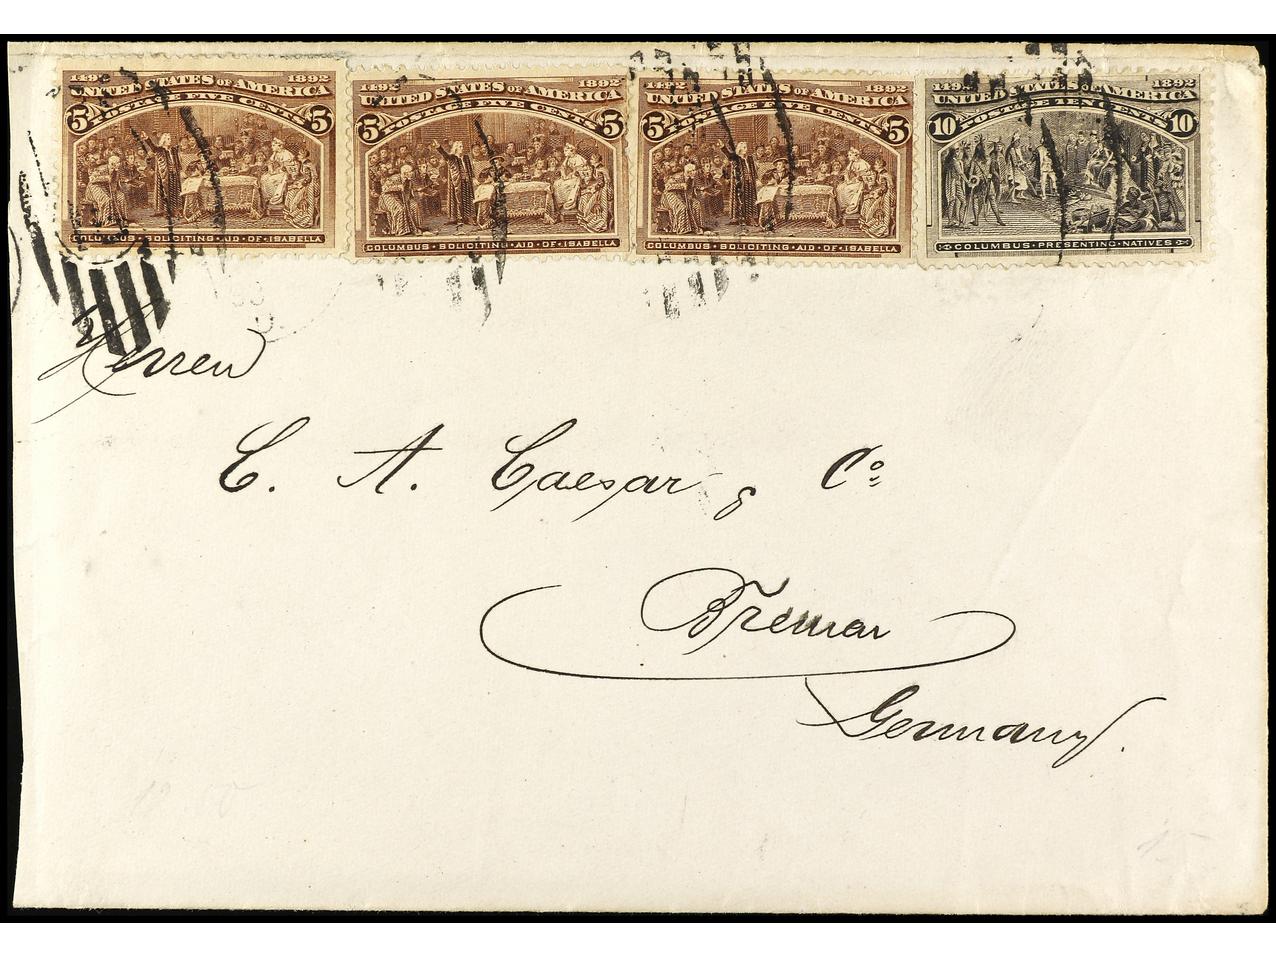 1492 1892 1492 1892 1492 1892 1492 1892
UNITED STATES OF AMERICA UNITED STATES OF AMERICA UNITED STATES OF AMERICA UNITED STATES OF AMERICA
5 POSTAGE FIVE CENTS 5 5 POSTAGE FIVE CENTS 5 5 POSTAGE FIVE CENTS 5 10 POSTAGE TEN CENTS 10
COLUMBUS · SOLICITING · AID · OF · ISABELLA COLUMBUS · SOLICITING · AID · OF · ISABELLA COLUMBUS · SOLICITING · AID · OF · ISABELLA COLUMBUS · PRESENTING · NATIVES
Herren
C. A. Caesar & Co
Bremen
Germany.